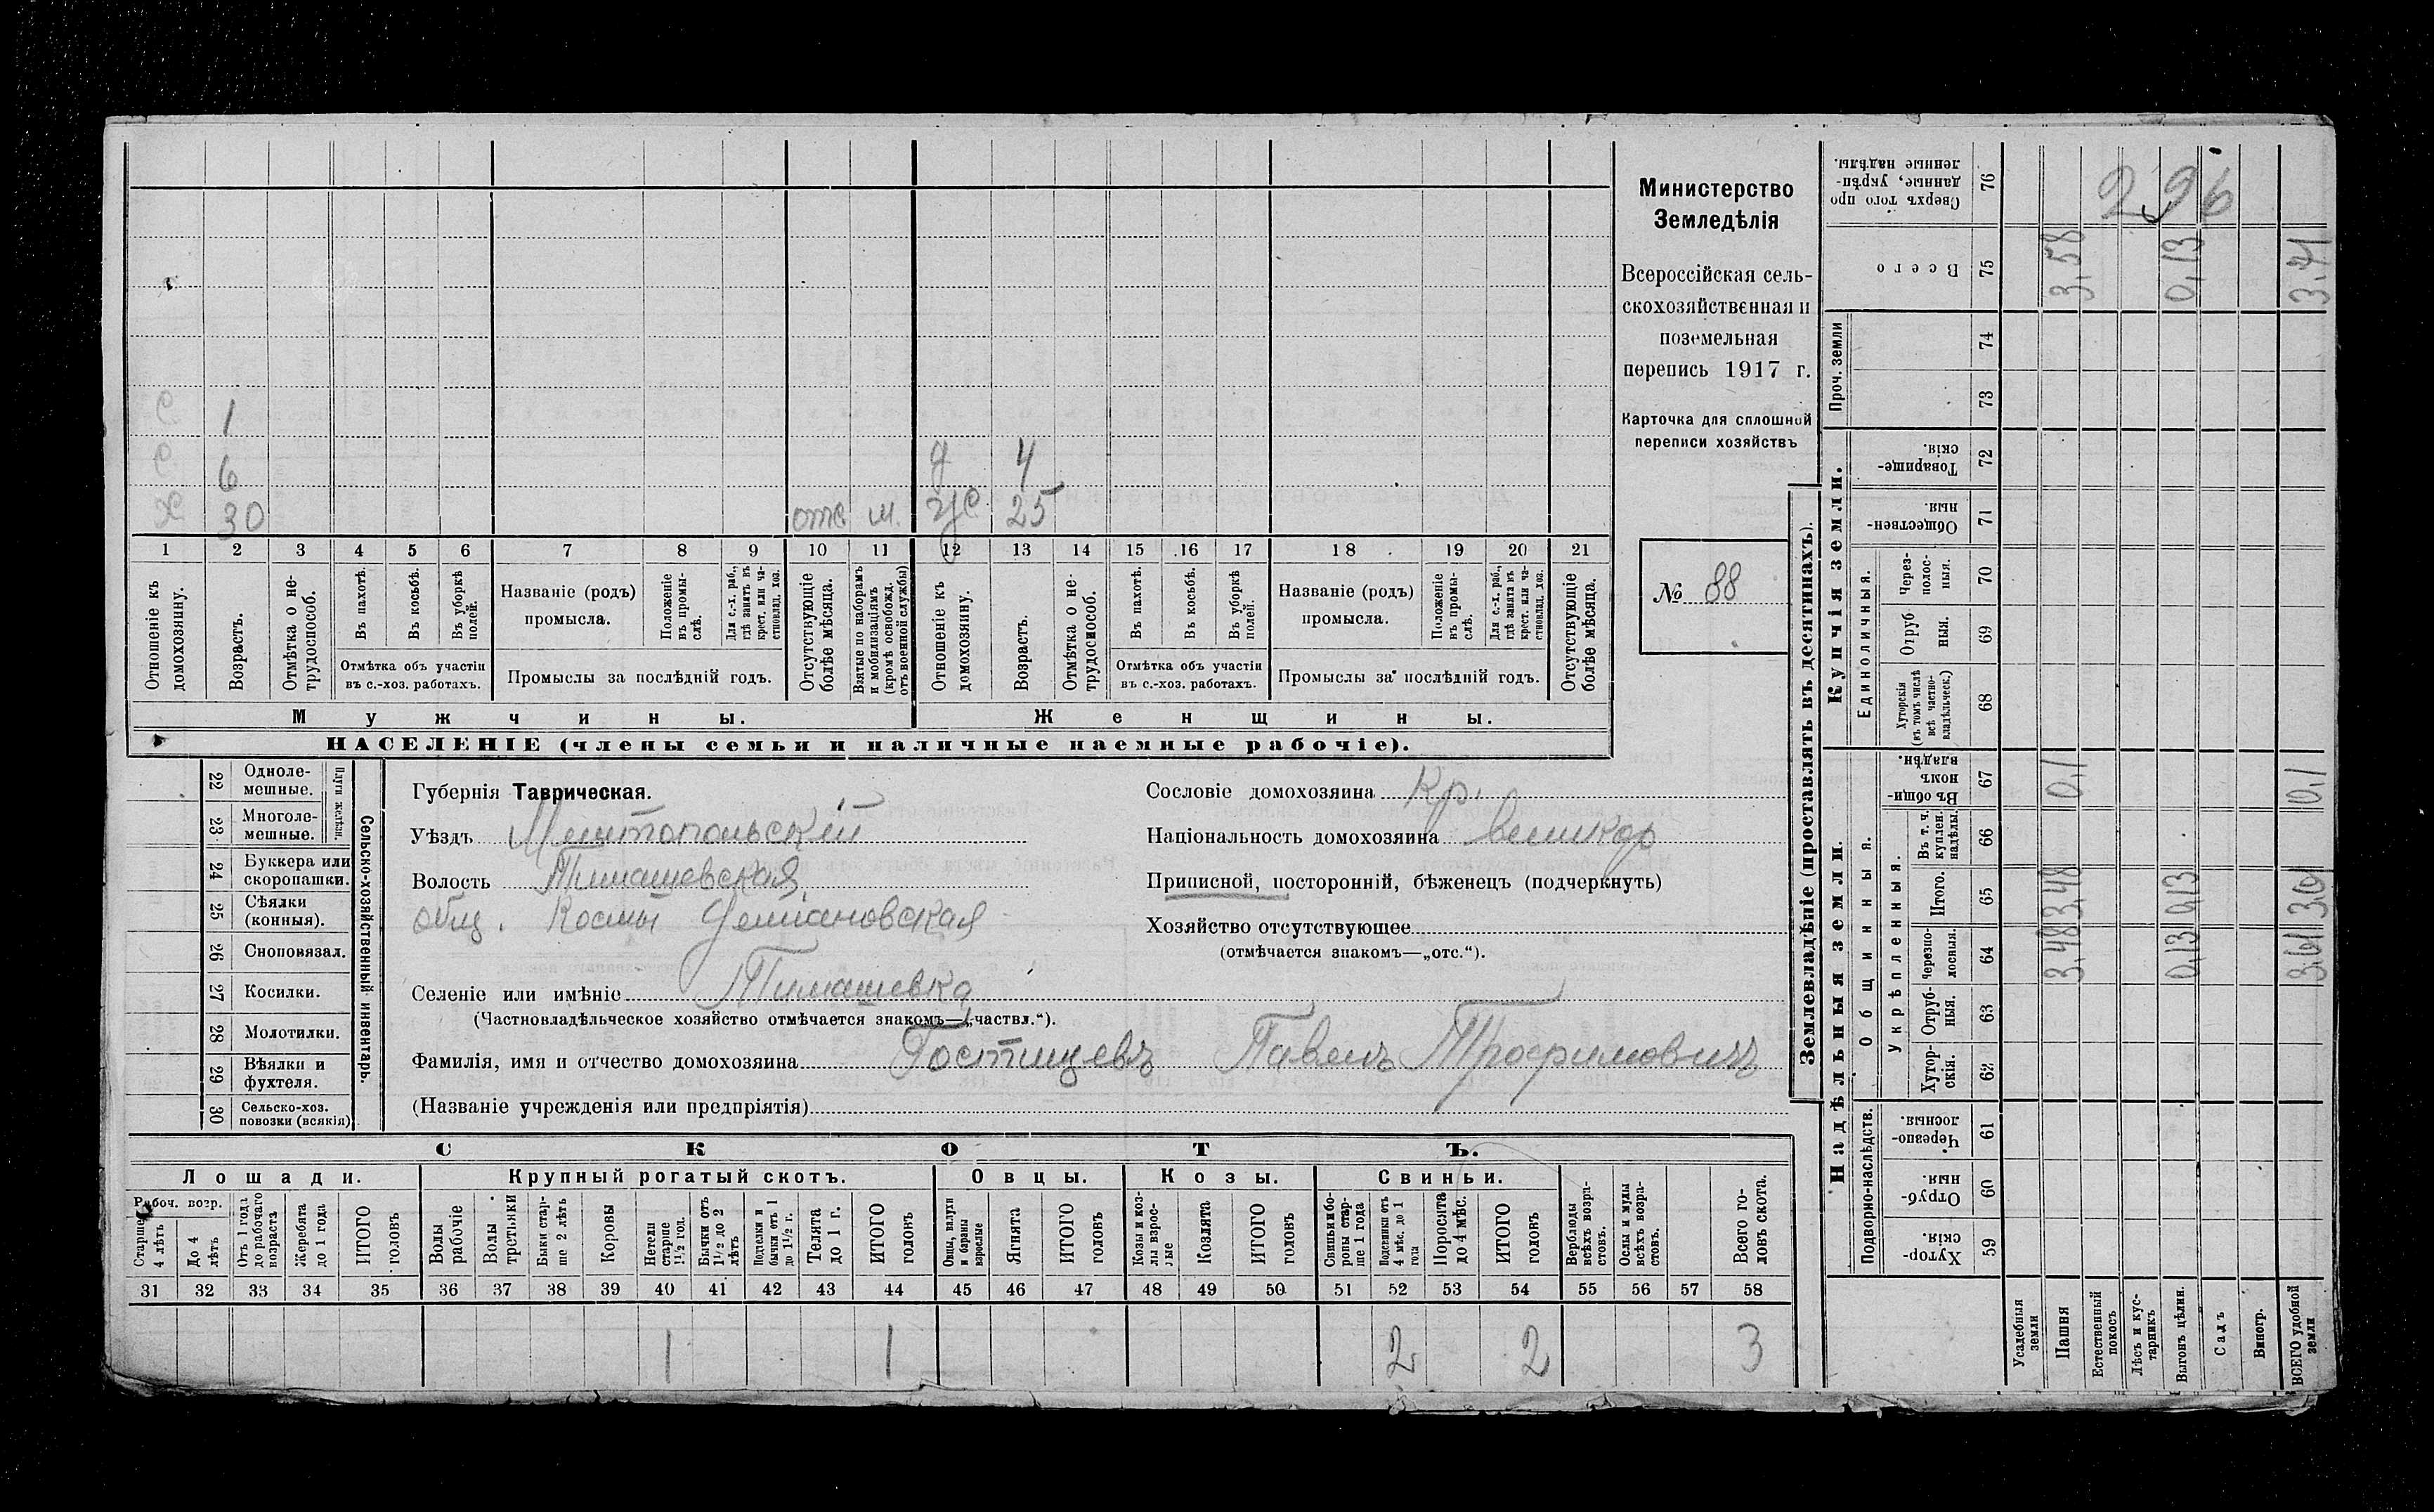 С 1
С 6 д 4
Х 30 отс м. ж 25
1 2 3 4 5 6 7 8 9 10 11 12 13 14 15 16 17 18 19 20 21
Отношеніе къ домохозяину.
Возрастъ.
Отмѣтка о нетрудоспособ.
Въ пахотѣ.
Въ косьбѣ.
Въ уборкѣ полей.
Отмѣтка объ участіи
въ с.-хоз. работахъ.
Названіе (родъ)
промысла.
Положеніе въ промыслѣ.
Для с.-х. раб., гдѣ занятъ въ крест. или частновлад. хоз.
Промыслы за послѣдній годъ.
Отсутствующіе болѣе мѣсяца.
Взятые по наборамъ и мобилизаціямъ (кромѣ освобожд. отъ военной службы)
Отношеніе къ домохозяину.
Возрастъ.
Отмѣтка о нетрудоспособ.
Въ пахотѣ.
Въ косьбѣ.
Въ уборкѣ полей.
Отмѣтка объ участіи
въ с.-хоз. работахъ.
Названіе (родъ)
промысла.
Положеніе въ промыслѣ.
Для с.-х. раб., гдѣ занята въ крест. или частновлад. хоз.
Промыслы за послѣдній годъ.
Отсутствующіе болѣе мѣсяца.
Мужчины.
Женщины.
НАСЕЛЕНІЕ (члены семьи и наличные наемные рабочіе).
Министерство
Земледѣлія
Всероссійская сель-
скохозяйственная и
поземельная
перепись 1917 г.
Карточка для сплошной
переписи хозяйствъ
№ 88
22 Одноле-
мешные.
23 Многоле-
мешные.
Плуги желѣзн.
24 Буккера или
скоропашки.
25 Сѣялки
(конныя).
26 Сноповязал.
27 Косилки.
28 Молотилки.
29 Вѣялки и
фухтеля.
30 Сельско-хоз.
повозки (всякія)
Сельско-хозяйственный инвентарь.
Губернія Таврическая.
Уѣздъ Мелитопольскій
Волость Тимашевская
общ. Космы Демьановская
Селеніе или имѣніе Тимашевка
(Частновладѣльческое хозяйство отмѣчается знакомъ—„частвл.“).
Фамилія, имя и отчество домохозяина Гостищевъ Павелъ Трофимовичъ
(Названіе учрежденія или предпріятія)
Сословіе домохозяина Кр.
Національность домохозяина великор
Приписной, посторонній, бѣженецъ (подчеркнуть)
Хозяйство отсутствующее
(отмѣчается знакомъ—„отс.“).
СКОТЪ.
Лошади. Крупный рогатый скотъ. Овцы. Козы. Свиньи.
Рабоч. возр.
Старше 4 лѣтъ
До 4 лѣтъ
Отъ 1 года до рабочаго возраста
Жеребята до 1 года
ИТОГО головъ
Волы рабочіе
Волы третьяки
Быки старше 2 лѣтъ
Коровы
Нетели старше 1½ год.
Бычки отъ 1½ до 2 лѣтъ
Подтелки и бычки отъ 1 до 1½ г.
Телята до 1 г.
ИТОГО головъ
Овцы, валухи и бараны взрослые
Ягнята
ИТОГО головъ
Козы и козлы взрослые
Козлята
ИТОГО головъ
Свиньи и боровы старше 1 года
Подсвинки отъ 4 мѣс. до 1 года
Поросята до 4 мѣс.
ИТОГО головъ
Верблюды всѣхъ возрастовъ.
Ослы и мулы всѣхъ возрастовъ.
Всего головъ скота.
31 32 33 34 35 36 37 38 39 40 41 42 43 44 45 46 47 48 49 50 51 52 53 54 55 56 57 58
1 1 2 2 3
Землевладѣніе (проставлять въ десятинахъ).
Надѣльныя земли.
Купчія земли.
Проч. земли
Подворно-наслѣдств.
Общинныя.
Укрѣпленныя.
Единоличныя.
Хуторскія. 59
Отрубныя. 60
Черезполосныя. 61
Хуторскія. 62
Отрубныя. 63
Черезполосныя. 64
Итого. 65
Въ т. ч. куплен. надѣлы. 66
Въ общинномъ владѣн. 67
Хуторскія (въ томъ числѣ всѣ частновладѣльческ.) 68
Отрубныя. 69
Черезполосныя. 70
Общественныя. 71
Товарищескія. 72
73
74
Всего 75
Сверхъ того проданные, укрѣпленные надѣлы. 76
Усадебныя земли
Пашня 3,48 3,48 0,1 3,58
Естественный покосъ
Лѣсъ и кустарникъ
Выгонъ цѣлин. 0,13 0,13 0,13
Садъ
Виногр.
ВСЕГО удобной земли 3,61 3,61 0,1 3,71
296